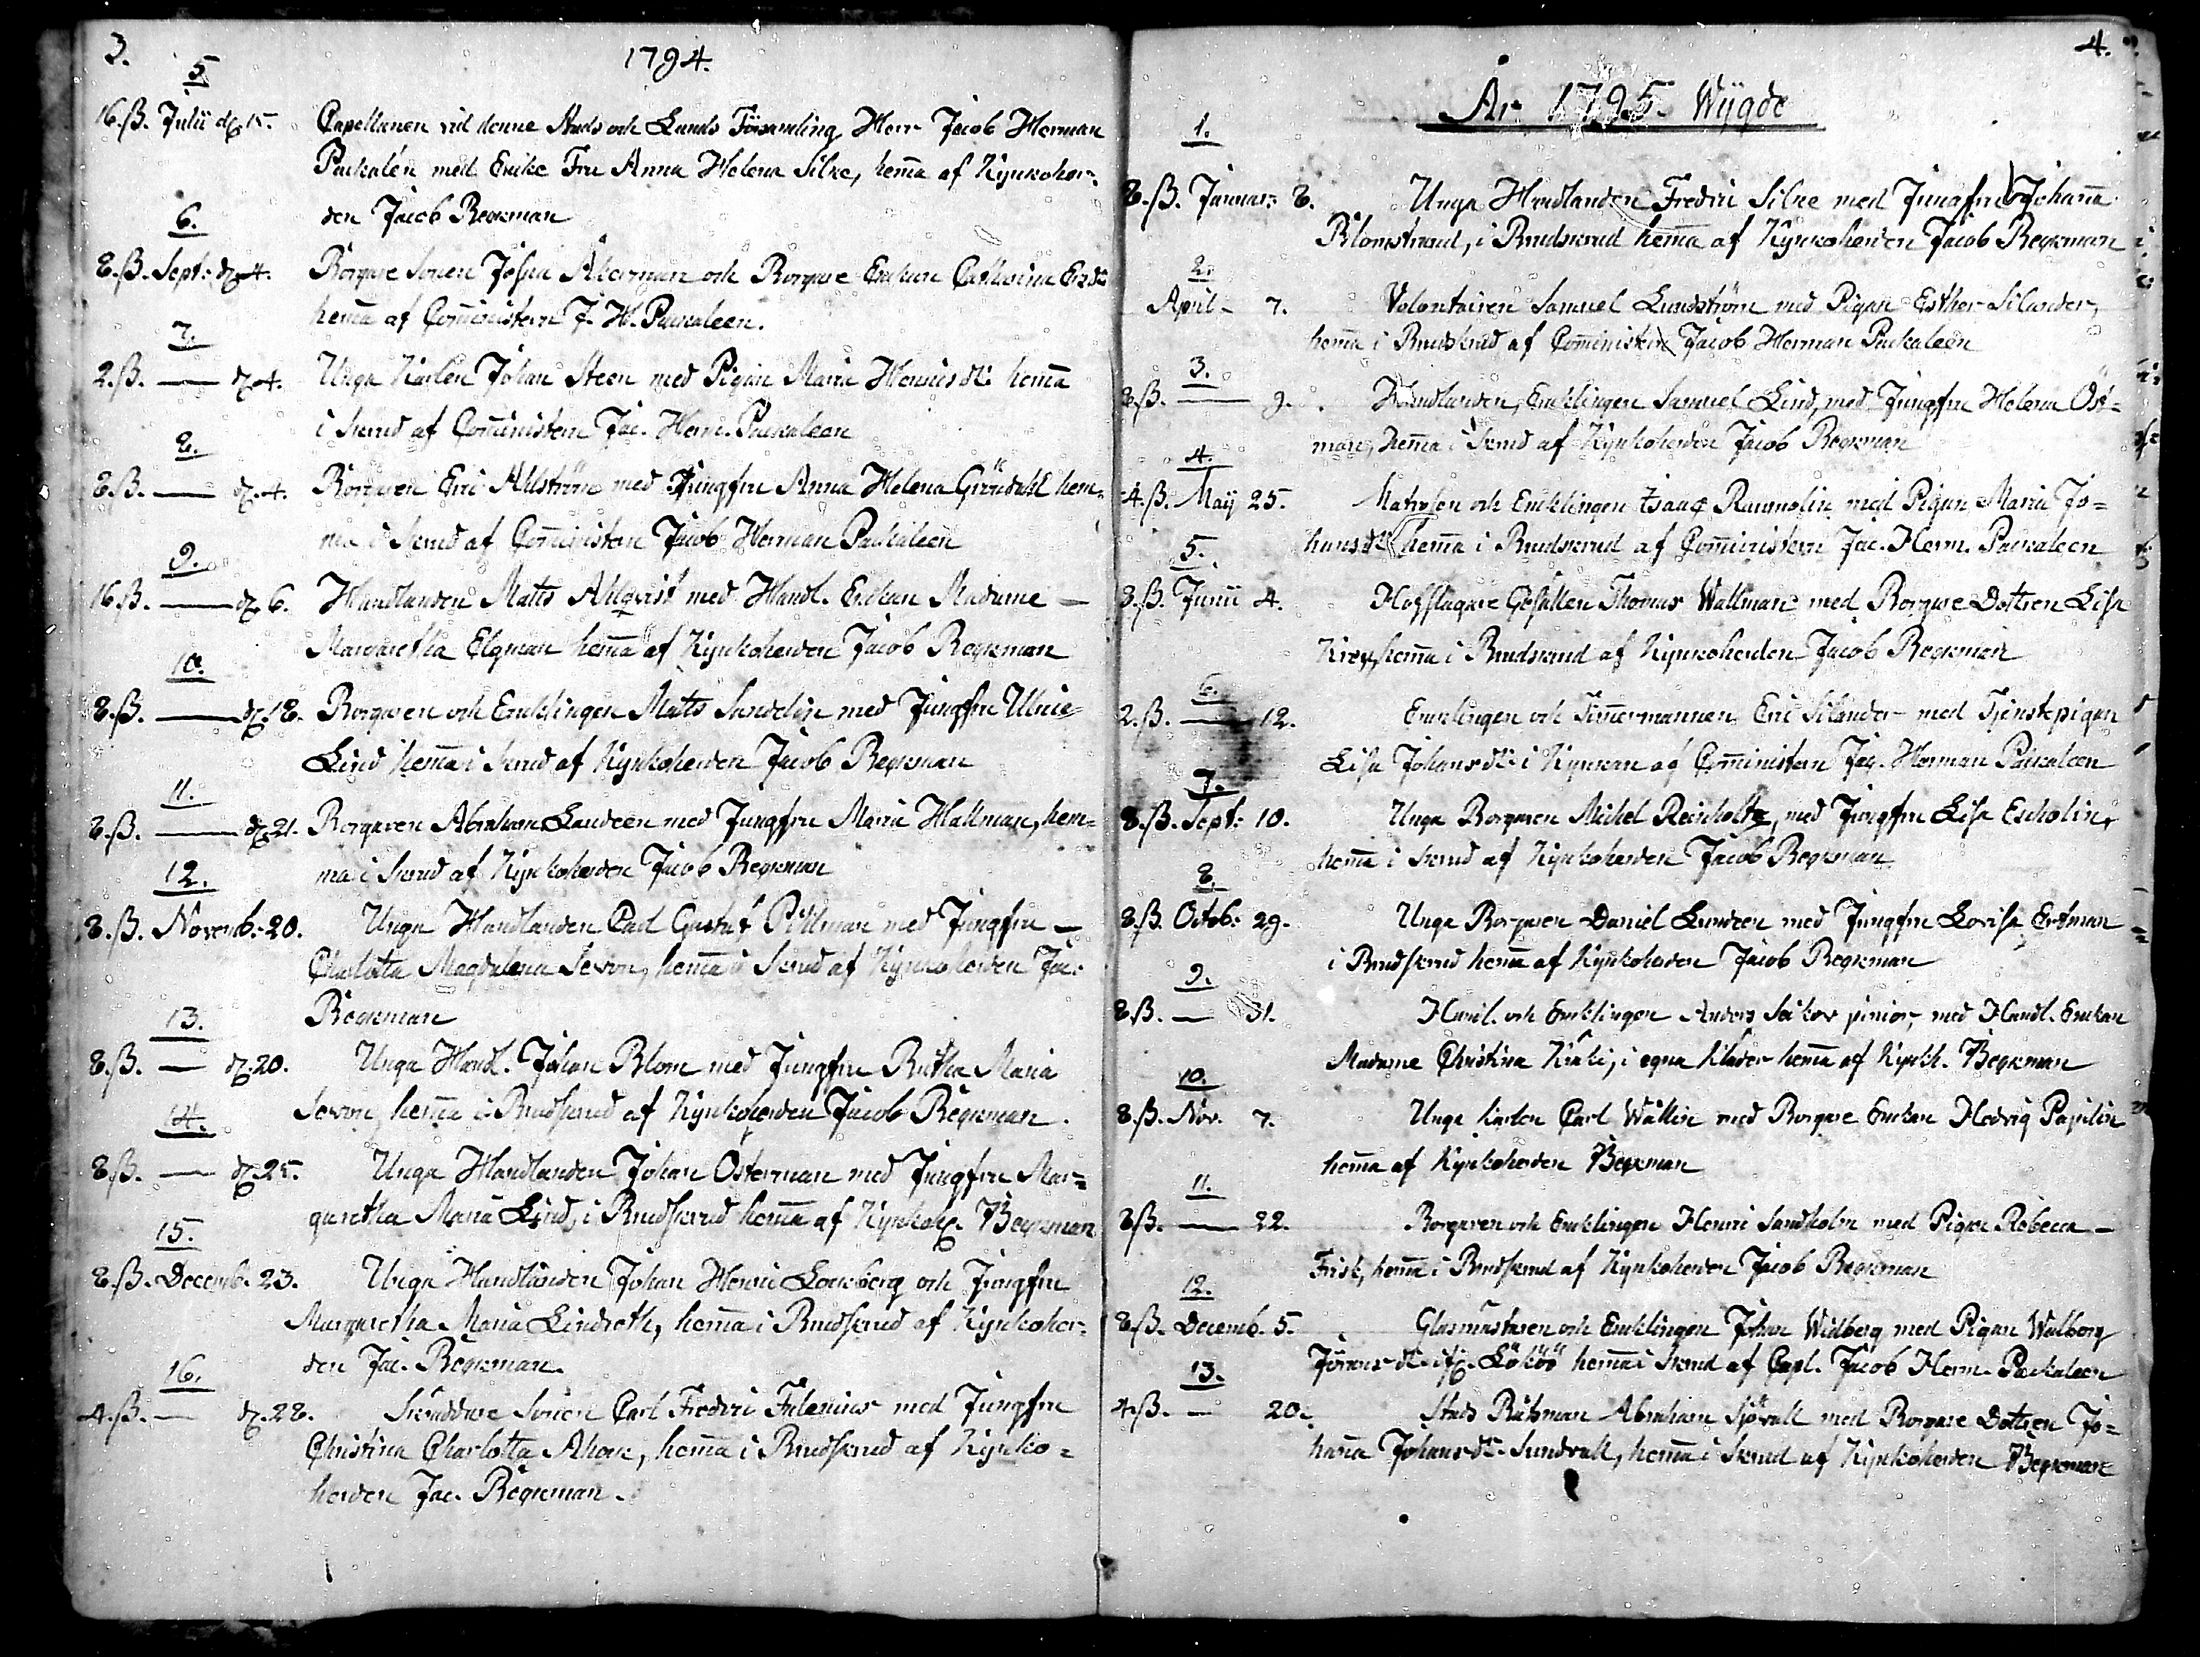 3.
1794.
5
16.ß. Julii d. 15. Capellanen vid denne Stads och Lands Församling Herr Jacob Herman
Packalén med Enke Fru Anna Helena Silke, hem̄a af Kyrkoher-
den Jacob Regnman
6.
8.ß. Sept: d. 4. Borgare Sonen Johan Åkerman och Borgare Enkan Catharina
hem̄a af Com̄inistern J. H. Packaleen.
7.
2.ß. — d. 4. Unga Karlen Johan Steen med Pigan Maria Henricsdr hem̄a
i Skrud af Com̄inistern Jac. Herm. Packaleen
8.
8.ß. — d. 4. Borgaren Eric Ahlström med Jungfru Anna Helena Gröndahl hem-
ma i Skrud af Com̄inistern Jacob Herman Packaleen
9.
16.ß. — d. 6. Handlanden Matts Ahlqvist med Handl. Enkan Madame —
Margaretha Elgman hem̄a af Kyrkoherden Jacob Regnman
10.
8.ß. — d. 18. Borgaren och Encklingen Matts Sundelin med Jungfru Ulrica
Lind hem̄a i Skrud af Kyrkoherden Jacob Regnman
11.
8.ß. — d. 21. Borgaren Abraham Landeen med Jungfru Maria Hallman, hem-
ma i Skrud af Kyrkoherden Jacob Regnman
12.
8.ß. Novemb. 20. Unga Handlanden Carl Gustaf Pihlman med Jungfru —
Charlotta Magdalena Sevon, hem̄a i Skrud af Kyrkoherden Jac.
Regnman
13.
8.ß. — d. 20. Unga Handl. Johan Blom med Jungfru Britha Maria
Sevon, hem̄a i Brudskrud af Kyrkoherden Jacob Regnman.
14.
8.ß. — d. 25. Unga Handlanden Johan Österman med Jungfru Mar-
garetha Maria Lind, i Brudskrud hem̄a af Kyrkoh. Regnman
15.
8.ß. Decemb. 23. Unga Handlanden Johan Henric Loenberg och Jungfru
Margaretha Maria Lindroth, hem̄a i Brudskrud af Kyrkoher-
den Jac. Regnman.
16.
4.ß. — d. 28. Skräddare Sonen Carl Fredric Falenius med Jungfru
Christina Charlotta Ahore, hem̄a i Brudskrud af Kyrko-
herden Jac. Regnman.
4.
År 1795. Wijgde
1.
8.ß. Januar: 8. Unga Handlanden Fredric Silke med Jungfru Johan̄a
Blomstrand, i Brudskrud hem̄a af Kyrkoherden Jacob Regnman
2.
April - 7. Volontairen Samuel Lundström med Pigan Esther Silander,
hem̄a i Brudskrud af Com̄inistern Jacob Herman Packaleen
3.
8.ß. — 9. Handlanden, Encklingen Samuel Lind, med Jungfru Helena Öst-
man, hem̄a i Skrud af Kyrkoherden Jacob Regnman
4.
4.ß. Maij 25. Matrosen och Encklingen Isaac Raumolin med Pigan Maria Jo-
hansdr hem̄a i Brudskrud af Com̄inistern Jac. Herm. Packaleen
5.
8.ß. Junii 4. Hofslagare Gesällen Thomas Wallman med Borgare Dottren Lisa
hem̄a i Brudskrud af Kyrkoherden Jacob Regnman
6.
2.ß. — 12. Encklingen och Tim̄ermannen Eric Silander med Tjenstepigan
Lisa Johansdr i Kyrkan af Com̄inistern Jac. Herman Packaleen
7.
8.ß. Sept: 10. Unga Borgaren Michel Reinholtz, med Jungfru Lisa Escholin,
hem̄a i Skrud af Kyrkoherden Jacob Regnman
8.
8.ß. Octob: 29. Unga Borgaren Daniel Lundeen med Jungfru Lovisa Ertman
i Brudskrud hem̄a af Kyrkoherden Jacob Regnman
9.
8.ß. — 31. Handl. och Encklingen Anders junior, med Handl. Enkan
Madame Christina i egna Kläder hem̄a af Kyrkh. Regnman
10.
8.ß. Nov. 7. Unga Karlen Carl Wallin med Borgare Enkan Hedvig Papulin
hem̄a af Kyrkoherden Regnman
11.
8.ß. — 22. Borgaren och Encklingen Henric Sandholm med Pigan Rebecca —
Frisk, hem̄a i Brudskrud af Kyrkoherden Jacob Regnman
12.
8.ß. Decemb. 5. Glasmästaren och Encklingen Johan Widberg med Pigan Walborg
Jöransdr Lökör hem̄a i Skrud af Capl. Jacob Herm. Packaleen
13.
4.ß. — 20. Stads Båtsman Abraham Sjövall med Borgare Dottren Jo-
han̄a Johansdr Sundvall, hem̄a i Skrud af Kyrkoherden Regnman